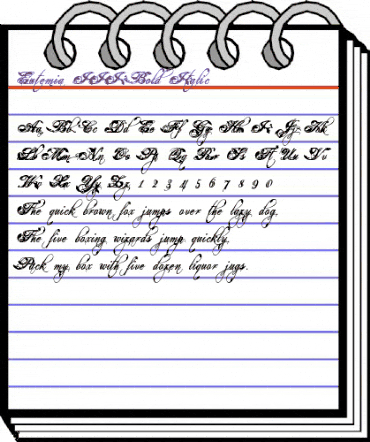 Eutemia III-Bold Italic
Aa Bb Cc Dd Ee Ff Gg Hh Ii Jj Kk
Ll Mm Nn Oo Pp Qq Rr Ss Tt Uu Vv
Ww Xx Yy Zz 1 2 3 4 5 6 7 8 9 0
The quick brown fox jumps over the lazy dog.
The five boxing wizards jump quickly.
Pack my box with five dozen liquor jugs.